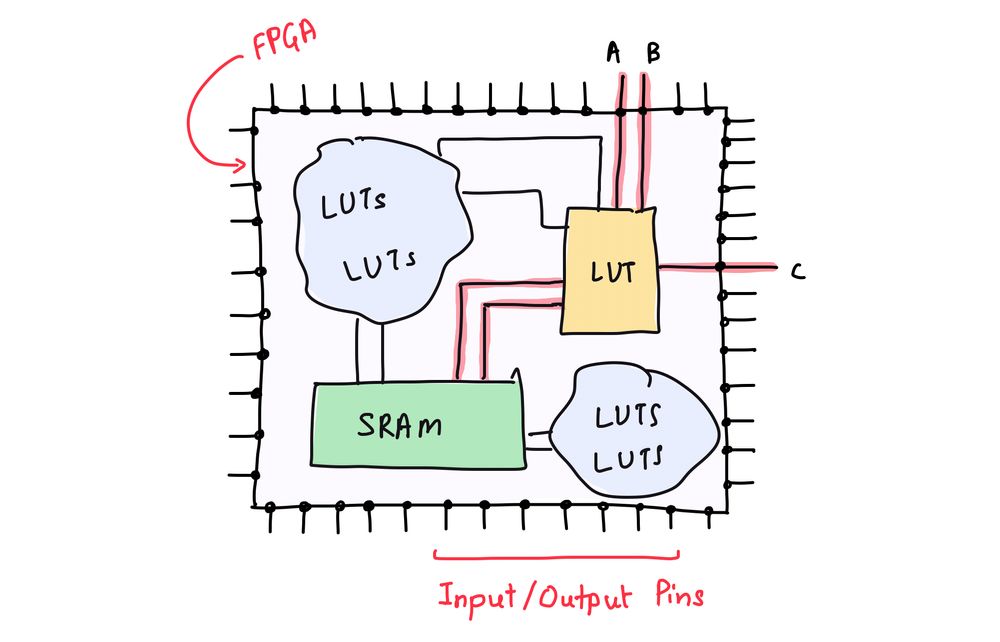 FPGA
A B
LUTs
LUTs
LUT
C
SRAM
LUTS
LUTS
Input/Output Pins